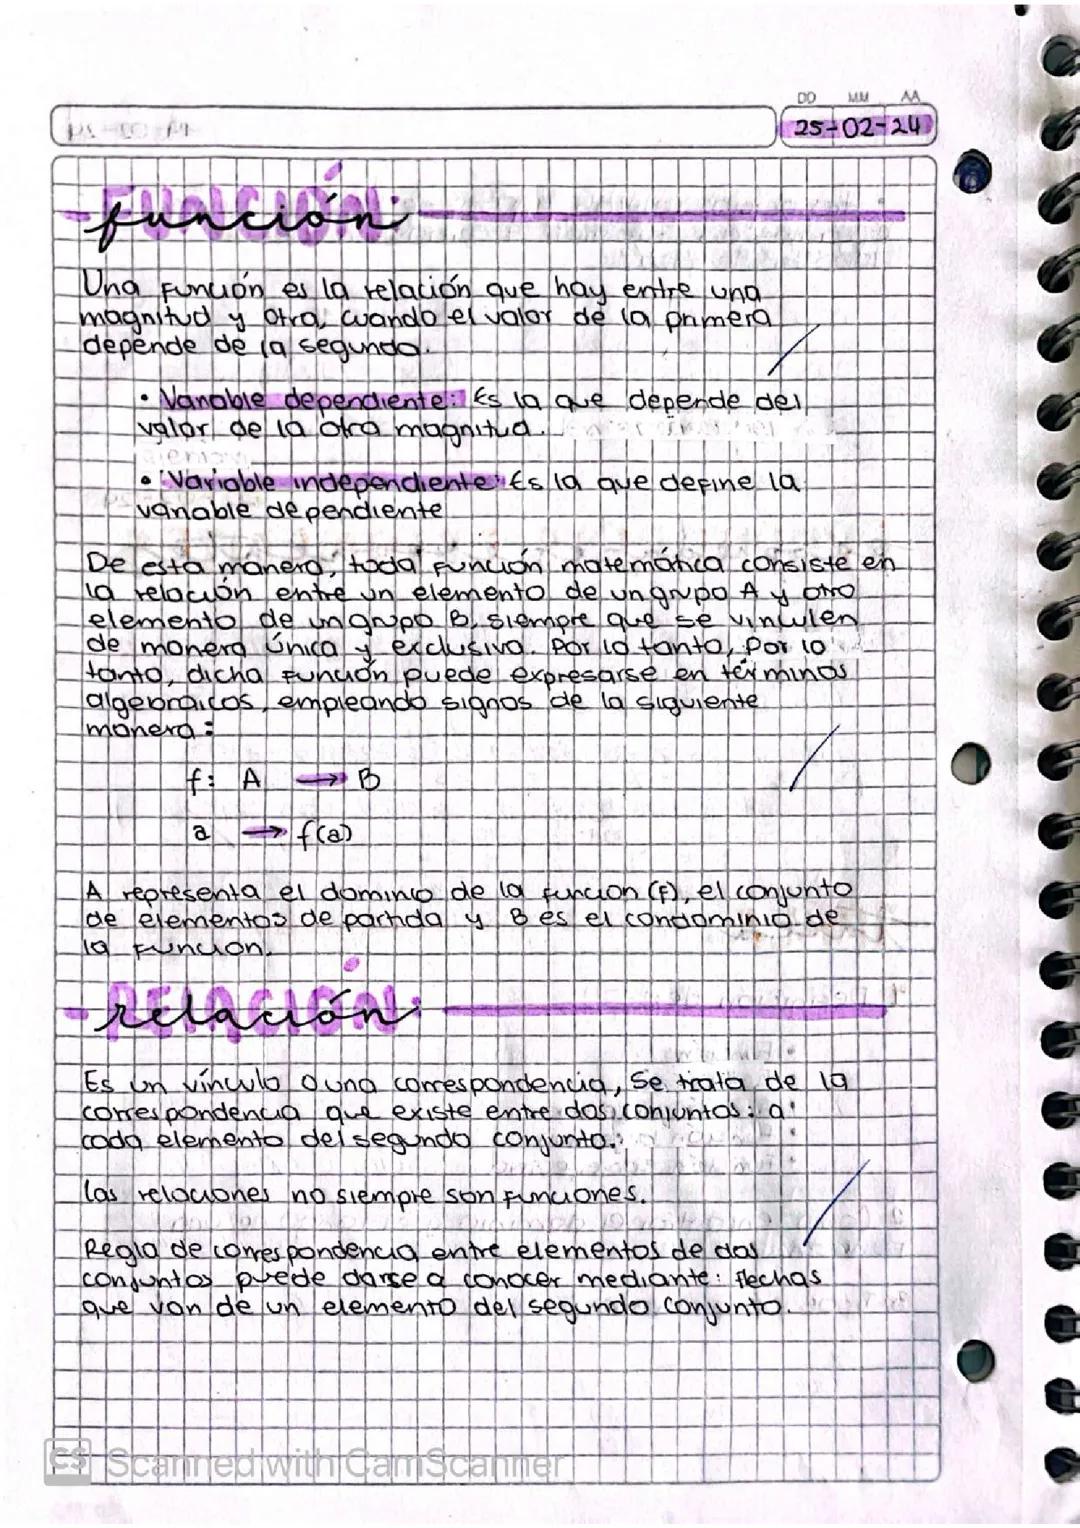 DD MM AA
25-02-24
función:
Una función es la relación que hay entre una
magnitud y otra, cuando el valor de la primera
depende de la segunda.
• Variable dependiente: Es la que depende del
valor de la otra magnitud.
• Variable independiente: Es la que define la
variable dependiente
De esta manera, toda función matemática consiste en
la relación entre un elemento de un grupo A y otro
elemento de un grupo B, siempre que se vinculen
de manera única y exclusiva. Por lo tanto, Por lo
tanto, dicha función puede expresarse en términos
algebraicos, empleando signos de la siguiente
manera:
f: A → B
a → f(a)
A representa el dominio de la función (f), el conjunto
de elementos de partida y B es el condominio de
la función.
relación:
Es un vínculo o una correspondencia, Se trata de la
correspondencia que existe entre dos conjuntos: a
cada elemento del segundo conjunto.
las relaciones no siempre son funciones.
Regla de correspondencia entre elementos de dos
conjuntos puede darse a conocer mediante: flechas
que van de un elemento del segundo conjunto.
CS Scanned with CamScanner